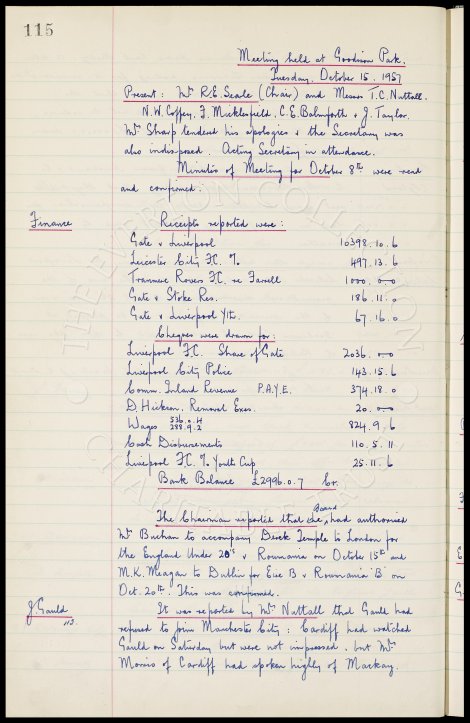 115
Meeting held at Goodison Park.
Tuesday, October 15, 1957
Present: Mr R.E. Searle (Chair) and Messrs T.C. Nuttall.
N.W. Coffey, F. Micklesfield, C.E. Balmforth & J. Taylor.
Mr Sharp tendered his apologies & the Secretary was
also indisposed. Acting Secretary in attendance.
Minutes of Meeting for October 8th were read
and confirmed.
Finance
Receipts reported were:
Gate v Liverpool 10398. 10. 6
Leicester City F.C. % 497. 13. 6
Tranmere Rovers F.C. re Farrell 1000. 0-0
Gate v Stoke Res. 186. 11. 0
Gate v Liverpool Yth. 67. 16. 0
Cheques were drawn for:
Liverpool F.C. Share of Gate 2036. 0-0
Liverpool City Police 143. 15. 6
Comm. Inland Revenue P.A.Y.E. 374. 18. 0
D. Hickson. Removal Exes. 20. 0-0
Wages 536.0.4 288.9.2 824. 9. 6
Cash Disbursements 110. 5. 11
Liverpool F.C. % Youth Cup 25. 11. 6
Bank Balance £2996.0.7 Cr.
The Chairman reported that the Board had authorised
Mr Buchan to accompany Derek Temple to London for
the England Under 20's v Roumania on October 15th and
M.K. Meagan to Dublin for Eire B v Roumania B on
Oct. 20th. This was confirmed.
J. Gauld
113.
It was reported by Mr Nuttall that Gauld had
refused to join Manchester City: Cardiff had watched
Gauld on Saturday but were not impressed, but Mr
Morris of Cardiff had spoken highly of Mackay.
THE EVERTON COLLECTION
CHARITABLE TRUST